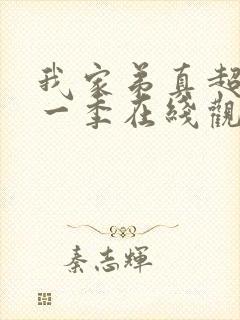 我家弟真超
一季在綫觀
秦志輝